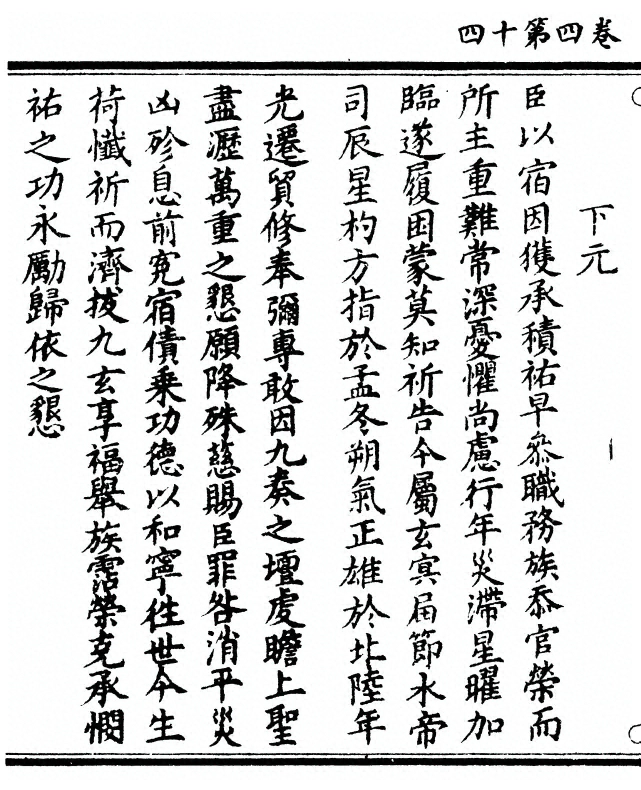 卷四第十四
下元
臣以宿因獲承積祐早叅職務族忝官榮而
所主重難常深憂懼尚慮行年災滯星曜加
臨遂履困蒙莫知祈告今屬玄冥届節水帝
司辰星杓方指於孟冬朔氣正雄於北陸年
光遷貿修奉彌專敢因九奏之壇虔瞻上聖
盡瀝萬重之懇願降殊慈賜臣罪咎消平災
凶殄息前寃宿債乗功德以和寧徃世今生
荷懺祈而濟拔九玄享福舉族霑榮克承憫
祐之功永勵歸依之懇